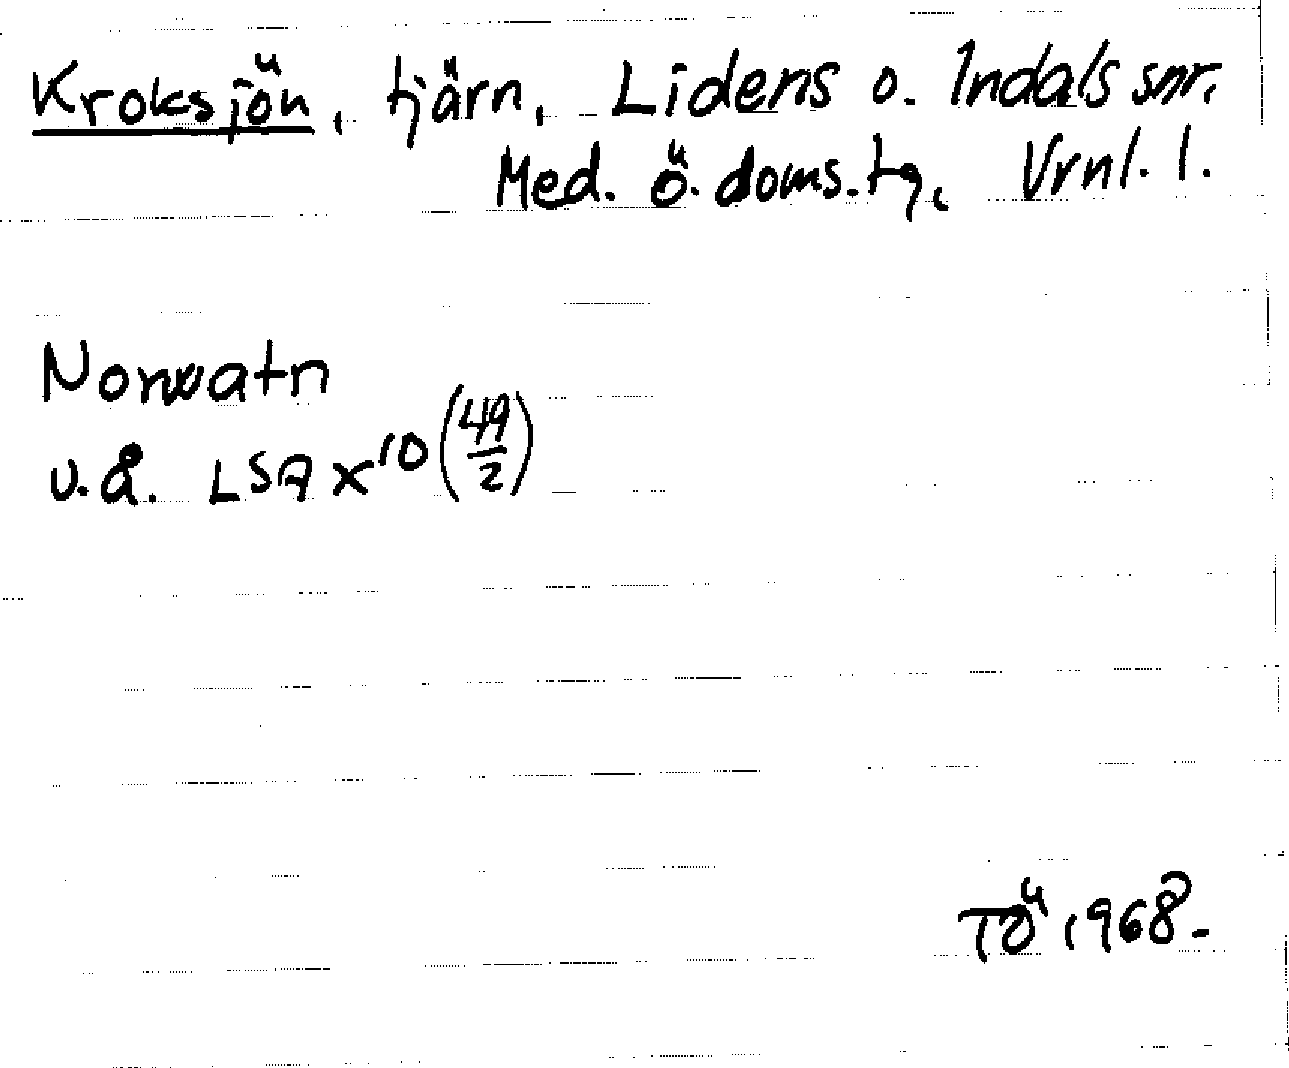 Kroksjön, tjärn, Lidens o. Indals snr,
Med. ö. doms.tg, Vrnl. l.
Norwatn
u.å. LSA X 10 (49/2)
TÖ 1968.